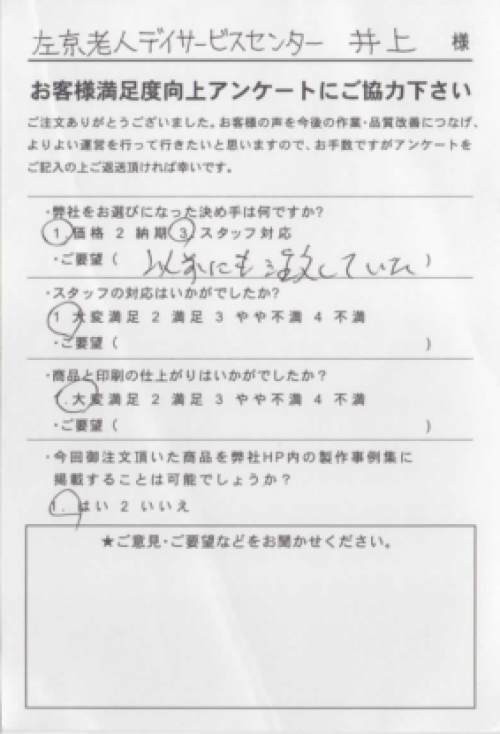 左京老人デイサービスセンター 井上 様
お客様満足度向上アンケートにご協力下さい
ご注文ありがとうございました。お客様の声を今後の作業・品質改善につなげ、
よりよい運営を行って行きたいと思いますので、お手数ですがアンケートを
ご記入の上ご返送頂ければ幸いです。
・弊社をお選びになった決め手は何ですか?
1.価格 2 納期 3.スタッフ対応
・ご要望( 以前にも注文していた )
・スタッフの対応はいかがでしたか?
1 大変満足 2 満足 3 やや不満 4 不満
・ご要望( )
・商品と印刷の仕上がりはいかがでしたか?
1.大変満足 2 満足 3 やや不満 4 不満
・ご要望( )
・今回御注文頂いた商品を弊社HP内の製作事例集に
掲載することは可能でしょうか?
1.はい 2 いいえ
★ご意見・ご要望などをお聞かせください。